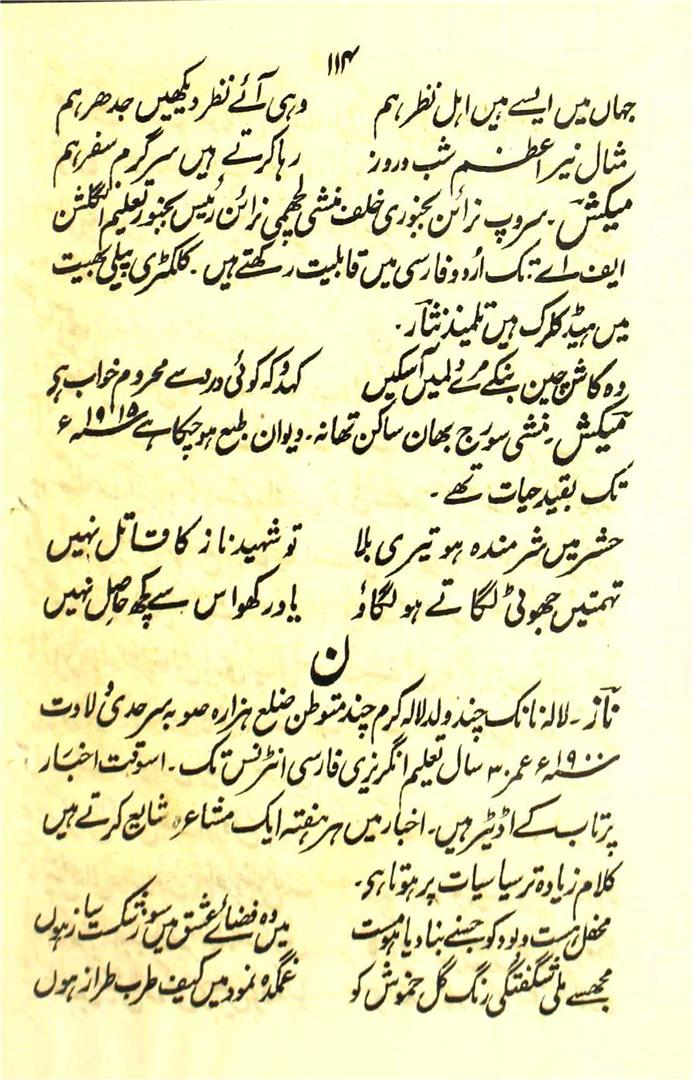 ۱۱۴
جہاں میں ایسے ہیں اہل نظر ہم وہی آئے نظر دیکھیں جدھر ہم
مثال نیر اعظم شب و روز رہا کرتے ہیں سرگرم سفر ہم
میکش۔ سروپ نرائن بجنوری خلف منشی لچھمی نرائن رئیس بجنور تعلیم انگلش
ایف اے تک اردو فارسی میں قابلیت رکھتے ہیں۔ کلکٹری پیلی بھیت
میں ہیڈ کلرک ہیں تلمیذ نثار۔
وہ کاش چین بنکے مرے دلمیں آسکیں کہدو کہ کوئی درد سے محروم خواب ہی
میکش۔ منشی سورج بھان ساکن تھانہ۔ دیوان طبع ہوچکا ہے ۱۹۱۵ء
تک بقید حیات تھے۔
حشر میں شرمندہ ہو تیری بلا تو شہید ناز کا قاتل نہیں
تہمتیں جھوٹی لگاتے ہو لگاؤ یاد رکھو اس سے کچھ حاصل نہیں
ن
ناز۔ لالہ نانک چند ولد لالہ کرم چند متوطن ضلع ہزارہ صوبہ سرحدی ولادت
۱۹۰۰ء عمر ۳۰ سال تعلیم انگریزی فارسی انٹرنس تک۔ اسوقت اخبار
پرتاب کے اڈیٹر ہیں۔ اخبار میں ہر ہفتہ ایک مشاعرہ شایع کرتے ہیں
کلام زیادہ تر سیاسیات پر ہوتا ہی۔
محفل ہست و بود کو جسنے بنا دیا ہو مست میں وہ فضائے عشق میں سوز شکست ساز ہوں
مجھسے ملی شگفتگی رنگ گل خموش کو غمکدہ نمود میں کیف طرب طراز ہوں